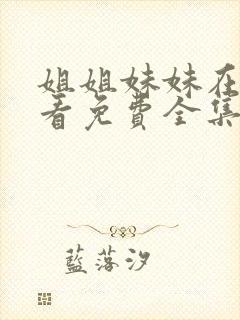 姐姐妹妹在
看免费全集
藍落汐